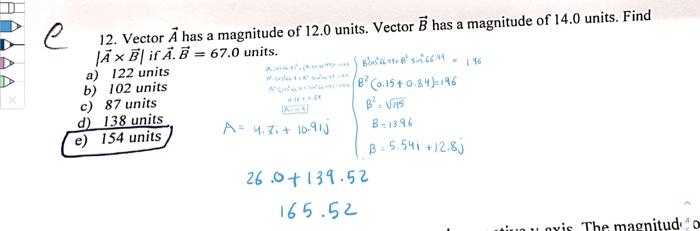 e
12. Vector A⃗ has a magnitude of 12.0 units. Vector B⃗ has a magnitude of 14.0 units. Find
|A⃗ × B⃗| if A⃗. B⃗ = 67.0 units.
a) 122 units
b) 102 units
c) 87 units
d) 138 units
e) 154 units
A= 4.7i + 10.91j
= 196
B²(0.15+0.84)=196
B² = √195
B = 13.96
B = 5.54i + 12.8j
26.0 + 139.52
165.52
axis. The magnitud